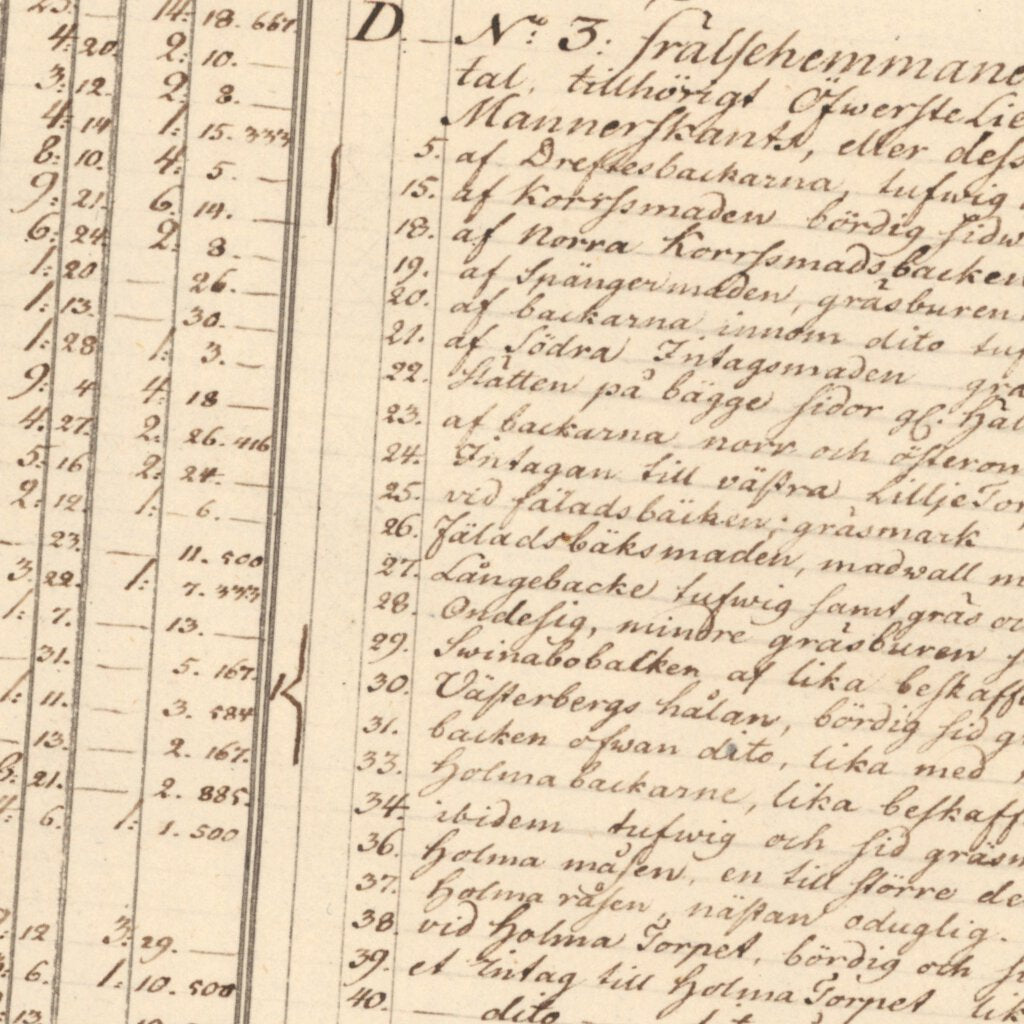 23. — 14: 18. 667.
4: 20. 2: 10. —
3: 12. 2: 8. —
4: 14 1: 15. 333
8: 10. 4: 5. —
9: 21. 6: 14. —
6: 24 2: 8. —
1: 20 — 26. —
1: 13. — 30. —
1: 28 1: 3. —
9: 4 4: 18 —
4. 27. 2: 26. 416
5: 16 2: 24. —
2: 12. 1: 6. —
— 23. — 11. 500
3. 22. 1: 7. 333
1: 7. — 13. —
— 31. — 5. 167.
1: 11. — 3. 584
— 13. — 2. 167.
8: 21. — 2. 885.
4: 6. 1: 1. 500
12 3: 29. —
6. 1: 10. 500
13
D. — No. 3: Frälsehemmane
tal, tillhörigt Öfwerste Lie
Mannerskants, eller dess
5. af Dreftesbackarna, tufwig
15. af Korrssmaden bördig sidw
18. af Norra Korrssmadsbacken
19. af Spängermaden, gräsburen
20. af backarna innom dito tuf
21. af Södra Intagsmaden grä
22. Slätten på bägge sidor gl. Häl
23. af backarna norr och österon
24. Intagan till västra Lillje Tor
25. vid fäladsbäcken; gräsmark
26. Fäladsbäksmaden, madwall m
27. Långebacke tufwig samt gräs oc
28. Ondesig, mindre gräsburen s
29. Swinabobalken af lika beskaff
30. Västerbergs hålan, bördig sid g
31. backen ofwan dito, lika med
33. Holma backarne, lika beskaff
34. ibidem tufwig och sid gräsm
36. Holma måsen, en till större de
37. Holma råsen, nästan oduglig.
38. vid Holma Torpet, bördig och s
39. et Intag till Holma Torpet lik
40. — dito —